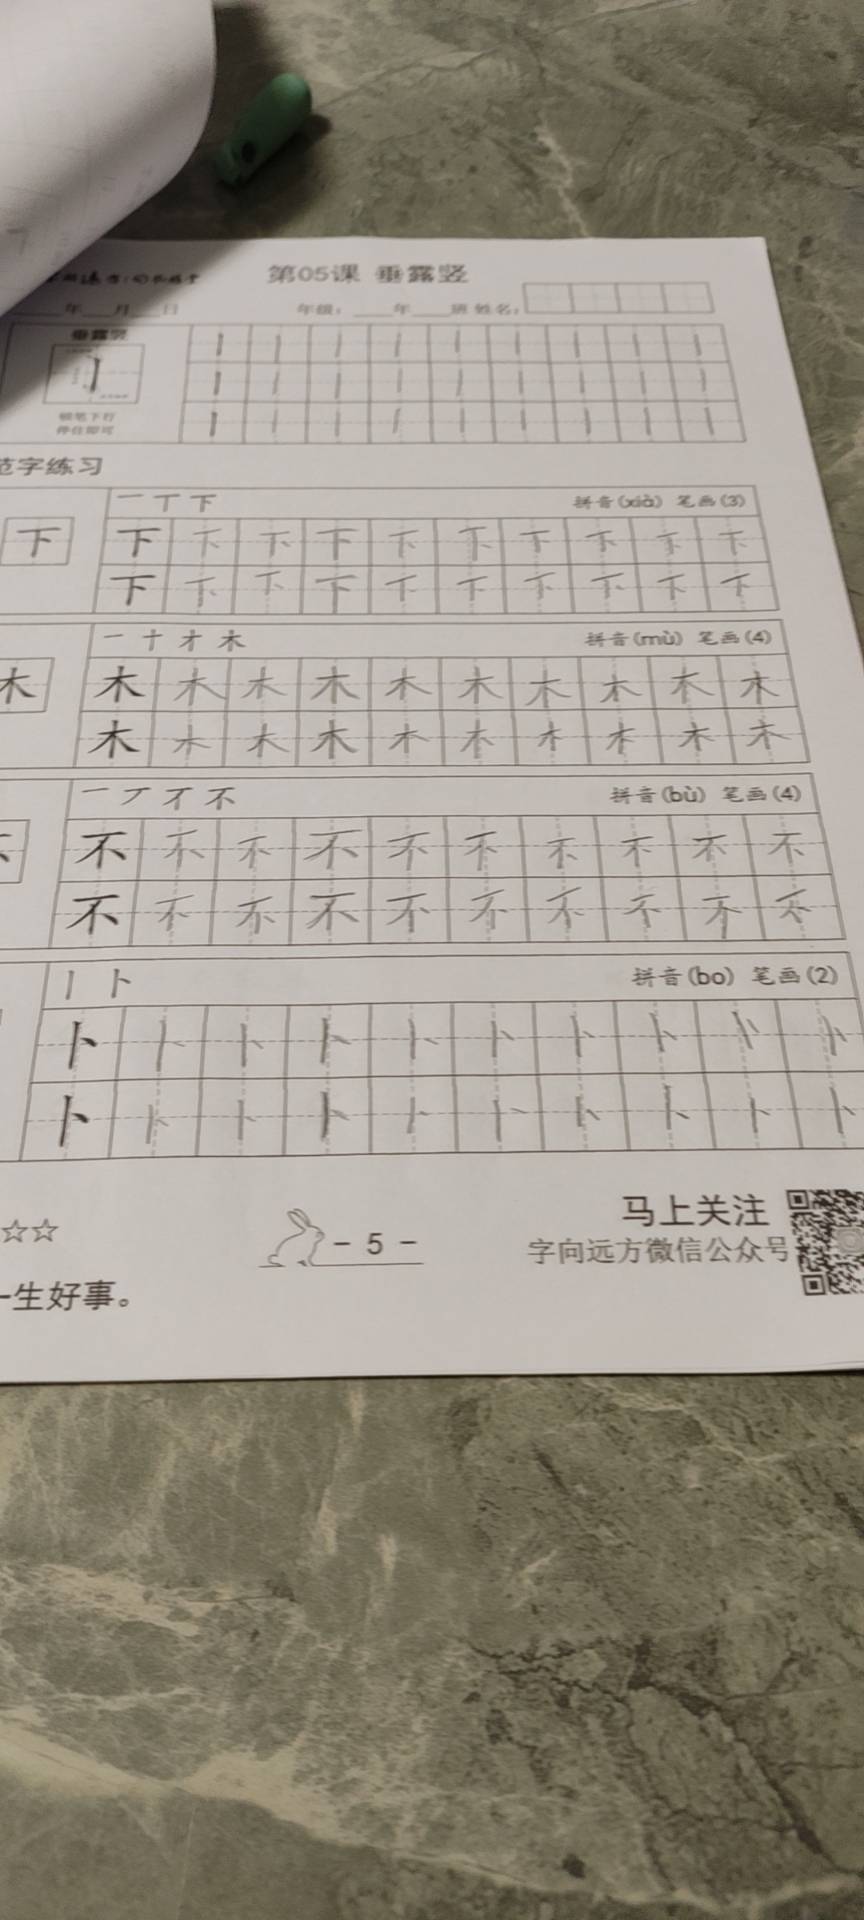 第05课 垂露竖
年 月 日 年级： 年 班 姓名：
垂露竖
顿笔下行
停住即可
范字练习
一 丅 下 拼音(xià) 笔画(3)
下 下 下 下 下 下 下 下 下 下 下
下 下 下 下 下 下 下 下 下 下
一 十 才 木 拼音(mù) 笔画(4)
木 木 木 木 木 木 木 木 木 木 木
木 木 木 木 木 木 木 木 木 木
一 丆 不 不 拼音(bù) 笔画(4)
不 不 不 不 不 不 不 不 不 不
不 不 不 不 不 不 不 不 不 不
丨 卜 拼音(bo) 笔画(2)
卜 卜 卜 卜 卜 卜 卜 卜 卜 卜
卜 卜 卜 卜 卜 卜 卜 卜 卜 卜
☆☆ - 5 - 马上关注
字向远方微信公众号
一生好事。